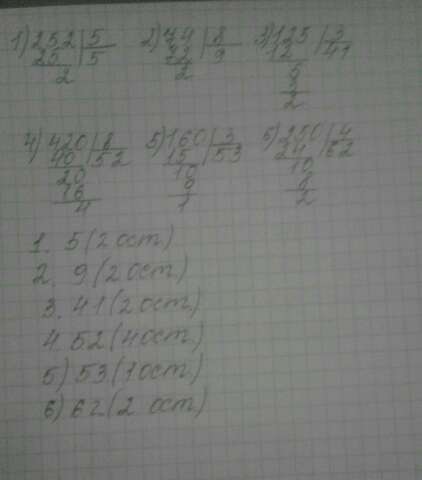 1) 252 | 5 2) 74 | 8 3) 125 | 3
25 | 5 72 | 9 12 | 41
2 2 5
3
2
4) 420 | 8 5) 160 | 3 6) 250 | 4
40 | 52 15 | 53 24 | 62
20 10 10
16 9 8
4 1 2
1. 5 (2 ост)
2. 9 (2 ост)
3. 41 (2 ост)
4. 52 (4 ост)
5) 53 (1 ост)
6) 62 (2 ост)